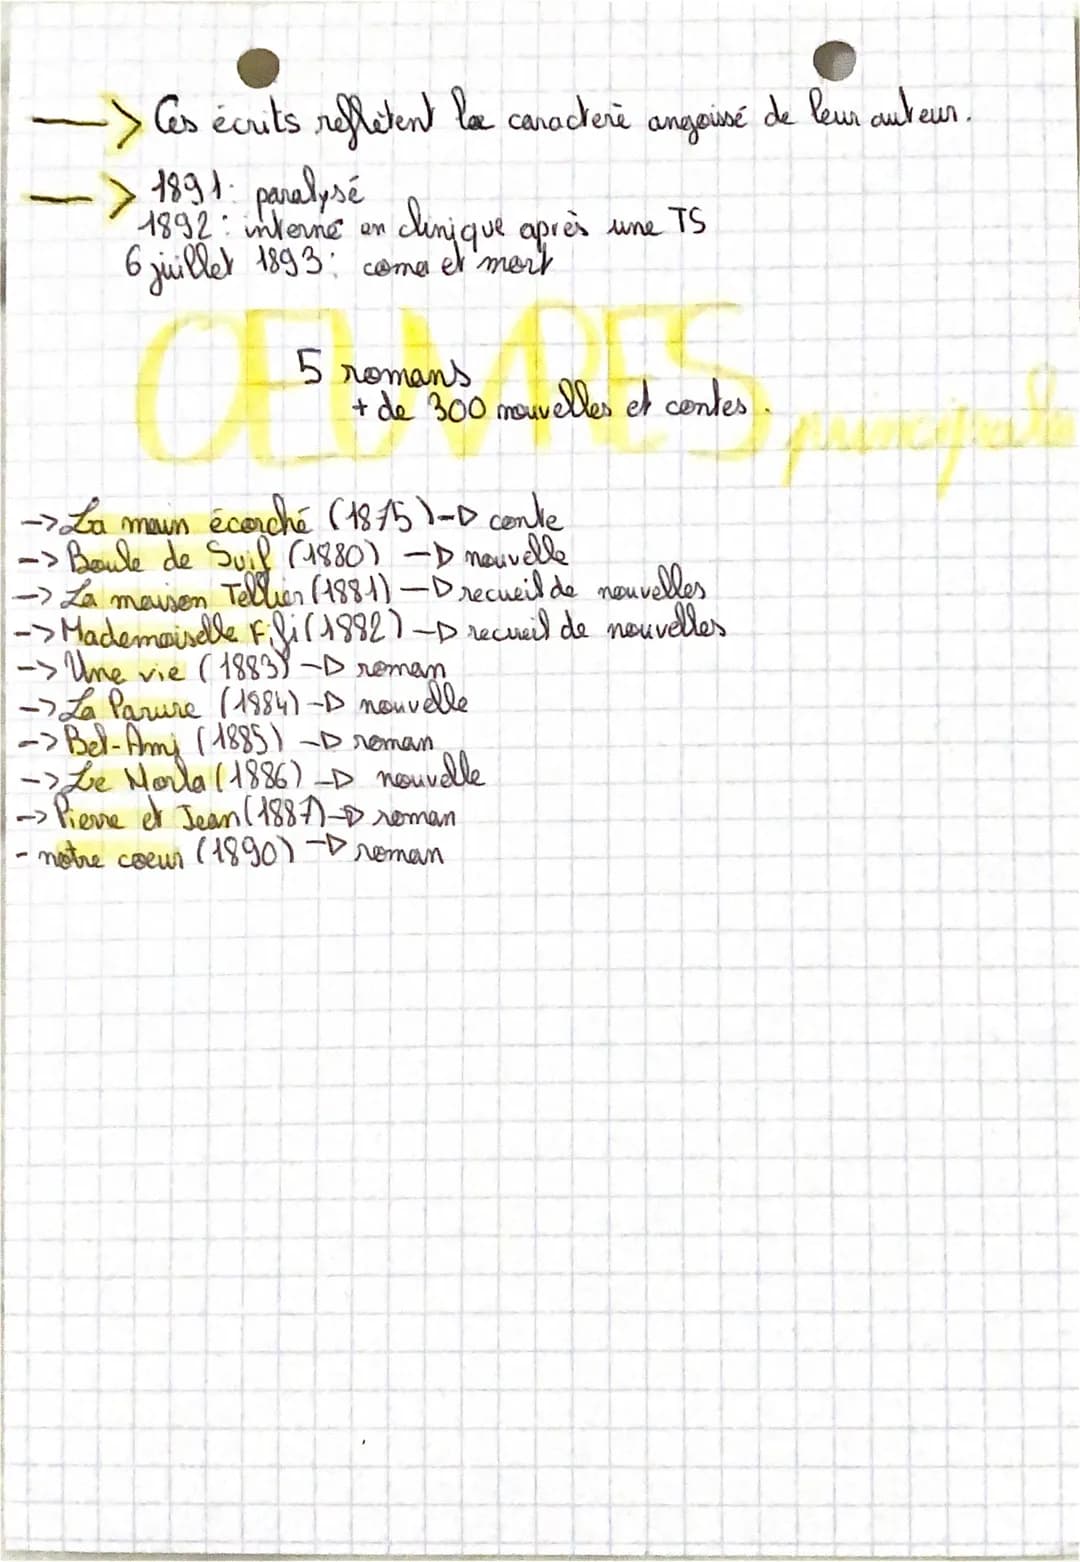 —> Ces écrits reflètent le caractère angoissé de leur auteur.
—> 1891: paralysé
1892: interné en clinique après une TS
6 juillet 1893: coma et mort
OEUVRES principales
5 romans
+ de 300 nouvelles et contes.
-> La main écorché (1875) -▷ conte
-> Boule de Suif (1880) -▷ nouvelle
-> La maison Tellier (1881) -▷ recueil de nouvelles
-> Mademoiselle Fifi (1882) -▷ recueil de nouvelles
-> Une vie (1883) -▷ roman
-> La Parure (1884) -▷ nouvelle
-> Bel-Ami (1885) -▷ roman
-> Le Horla (1886) -▷ nouvelle
-> Pierre et Jean (1887) -▷ roman
- notre coeur (1890) -▷ roman